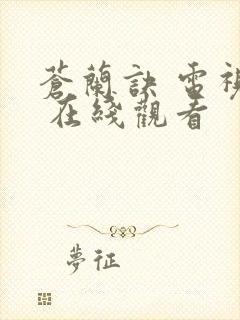 蒼蘭訣 電視
在綫觀看
夢征